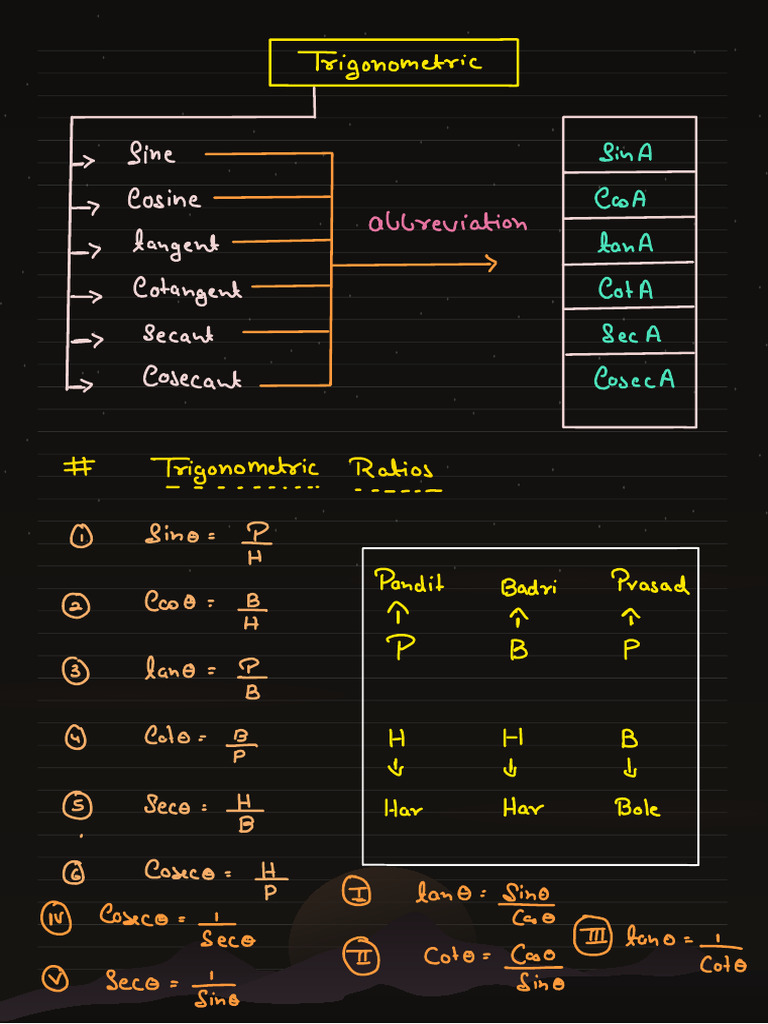 Trigonometric
Sine
Cosine
tangent
Cotangent
Secant
Cosecant
abbreviation
Sin A
Cos A
tan A
Cot A
Sec A
Cosec A
# Trigonometric Ratios
① Sinθ = P/H
② Cosθ = B/H
③ tanθ = P/B
④ Cotθ = B/P
⑤ Secθ = H/B
⑥ Cosecθ = H/P
Pandit Badri Prasad
P B P
H H B
Har Har Bole
I tanθ = Sinθ/Cosθ
II Cotθ = Cosθ/Sinθ
III tanθ = 1/Cotθ
IV Cosecθ = 1/Secθ
V Secθ = 1/Sinθ